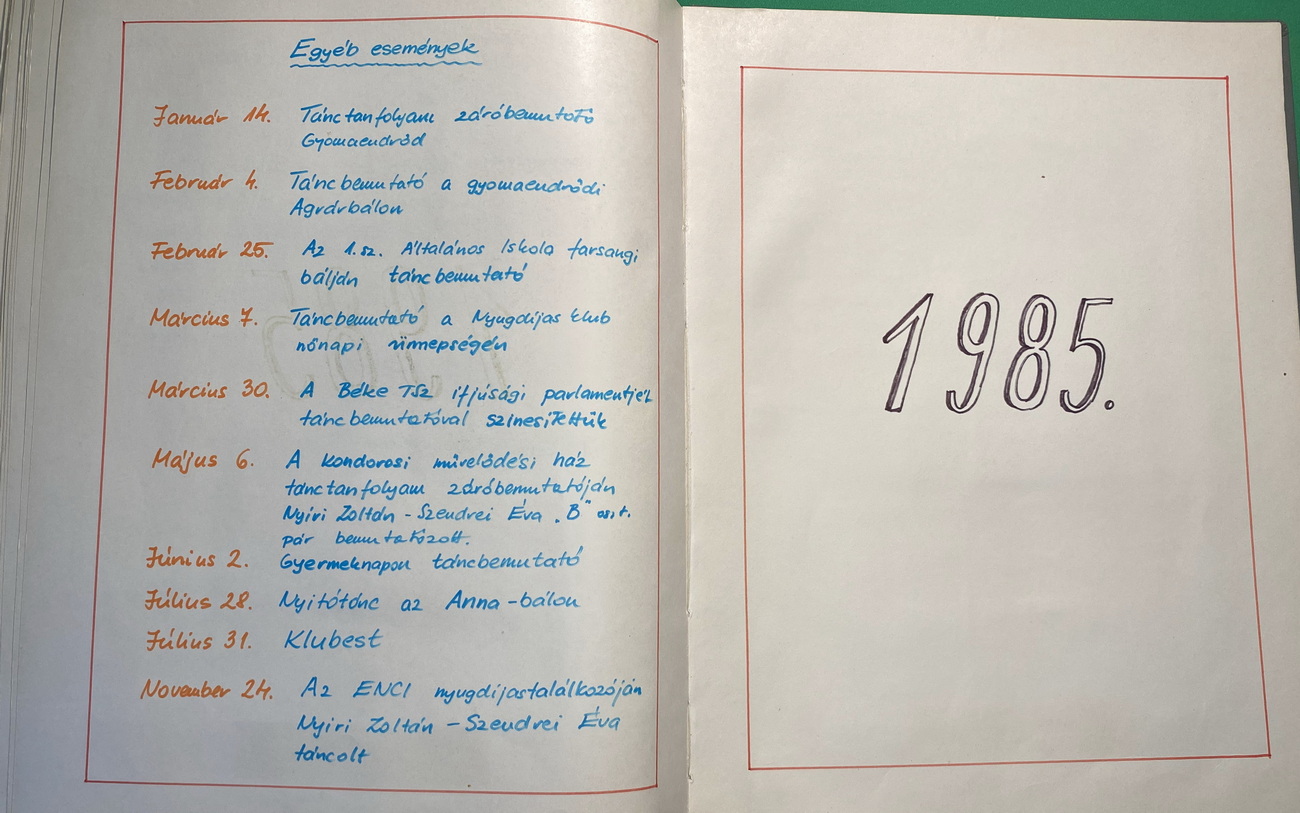 Egyéb események
Január 14. Tánctanfolyam záróbemutató
Gyomaendrőd
Február 4. Táncbemutató a gyomaendrődi
Agrárbálon
Február 25. Az 1.sz. Általános Iskola farsangi
bálján táncbemutató
Március 7. Táncbemutató a Nyugdíjas klub
nőnapi ünnepségén
Március 30. A Béke TSz ifjúsági parlamentjét
táncbemutatóval szinesítettük
Május 6. A kondorosi művelődési ház
tánctanfolyam záróbemutatóján
Nyíri Zoltán - Szendrei Éva „B" oszt.
pár bemutatózott.
Június 2. Gyermeknapon táncbemutató
Július 28. Nyitótánc az Anna-bálon
Július 31. Klubest
November 24. Az ENCI nyugdíjastalálkozóján
Nyiri Zoltán - Szendrei Éva
táncolt
1985.